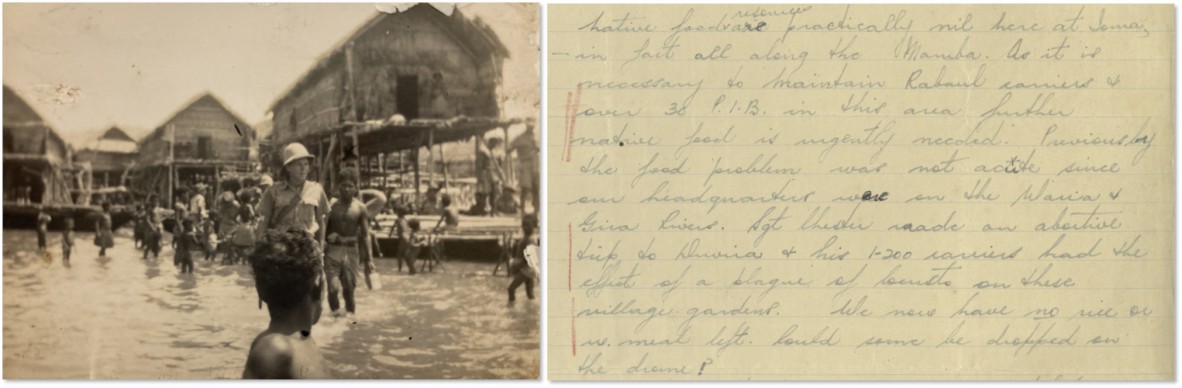 resources
native food are practically nil here at Ioma,
- in fact all along the Mamba. As it is
necessary to maintain Rabaul carriers &
over 30 P.I.B. in this area further
native food is urgently needed. Previously
the food problem was not acute since
our headquarters were on the Waria &
Gira Rivers. Sgt Chester made an abortive
trip to Duvira & his 1-200 carriers had the
effect of a plague of locusts on these
village gardens. We now have no rice or
w. meal left. Could some be dropped on
the drome?